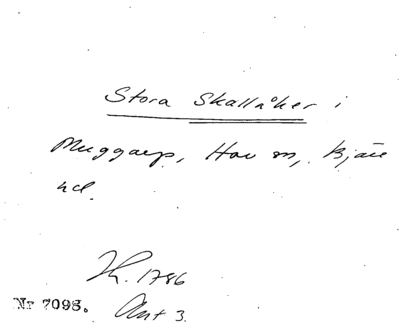 Stora Skallåker i
Muggarp, Hov sn, Bjäre
hd.
Lh. 1786
Nr 7098. Akt 3.